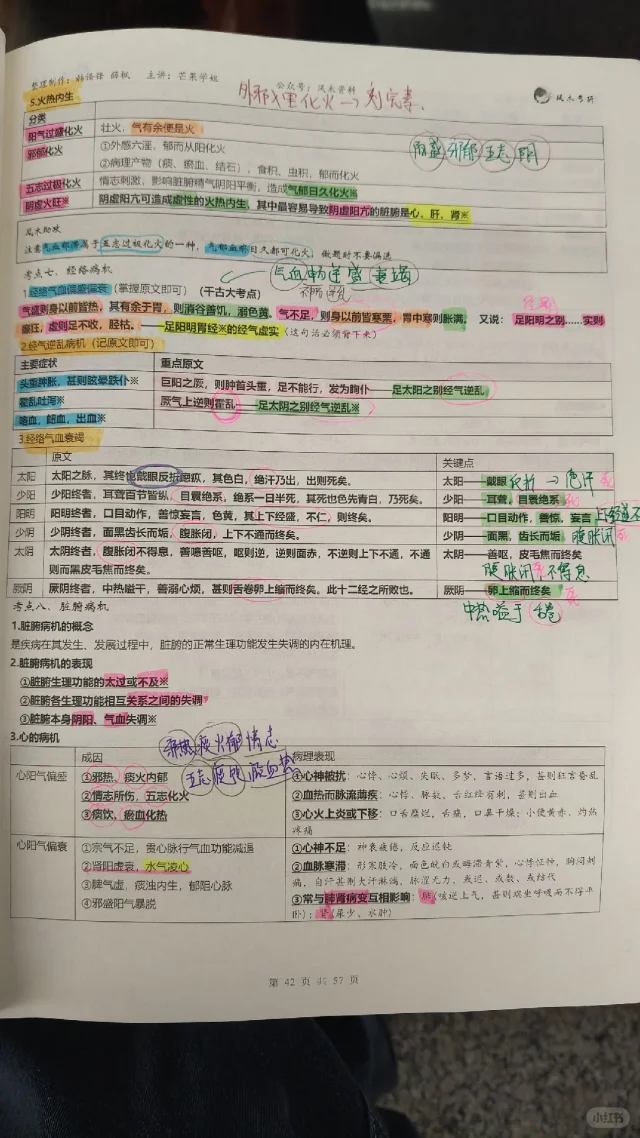 整理制作：杨语锋 薛枫 主讲：芒果学姐
公众号：风禾资料
风禾考研
外邪、里化火→刘完素、
5.火热内生
分类
阳气过盛化火 壮火，气有余便是火
邪郁化火 ①外感六淫，郁而从阳化火
②病理产物（痰、瘀血、结石），食积、虫积，郁而化火
阳盛 邪郁 五志 阴
五志过极化火 情志刺激，影响脏腑精气阴阳平衡，造成气郁日久化火※
阴虚火旺※ 阴虚阳亢可造成虚性的火热内生，其中最容易导致阴虚阳亢的脏腑是心、肝、肾※
风禾助攻
注意气血郁滞属于五志过极化火的一种，气郁血瘀日久都可化火，做题时不要漏选
考点七、经络病机
1.经络气血偏盛偏衰（掌握原文即可）（千古大考点）
气盛则身以前皆热，其有余于胃，则消谷善饥，溺色黄。气不足，则身以前皆寒栗，胃中寒则胀满。 又说：足阳明之别……实则
癫狂，虚则足不收，胫枯。——足阳明胃经※的经气虚实（这句话必须背下来）
2.经气逆乱病机（记原文即可）
主要症状 重点原文
头重肿胀，甚则眩晕跌仆※ 巨阳之厥，则肿首头重，足不能行，发为眴仆——足太阳之别经气逆乱
霍乱吐泻※ 厥气上逆则霍乱——足太阴之别经气逆乱※
咯血，衄血，出血※
3.经络气血衰竭
原文 关键点
太阳 太阳之脉，其终也戴眼反折瘛疭，其色白，绝汗乃出，出则死矣。 太阳——戴眼反折→绝汗
少阳 少阳终者，耳聋百节皆纵，目睘绝系，绝系一日半死，其死也色先青白，乃死矣。 少阳——耳聋，目睘绝系
阳明 阳明终者，口目动作，善惊妄言，色黄，其上下经盛，不仁，则终矣。 阳明——口目动作，善惊，妄言
少阴 少阴终者，面黑齿长而垢，腹胀闭，上下不通而终矣。 少阴——面黑，齿长而垢 腹胀闭
太阴 太阴终者，腹胀闭不得息，善噫善呕，呕则逆，逆则面赤，不逆则上下不通，不通 太阴——善呕，皮毛焦而终矣
则面黑皮毛焦而终矣。 腹胀闭不得息
厥阴 厥阴终者，中热嗌干，善溺心烦，甚则舌卷卵上缩而终矣。此十二经之所败也。 厥阴——卵上缩而终矣
考点八、脏腑病机
1.脏腑病机的概念
是疾病在其发生、发展过程中，脏腑的正常生理功能发生失调的内在机理。
2.脏腑病机的表现
①脏腑生理功能的太过或不及※
②脏腑各生理功能相互关系之间的失调
③脏腑本身阴阳、气血失调※
3.心的病机
邪热痰火郁情志
成因 病理表现
心阳气偏盛 ①邪热，痰火内郁 ①心神被扰：心悸、心烦、失眠、多梦，言语过多，甚则狂言昏乱
②情志所伤，五志化火 ②血热而脉流薄疾：心悸、脉数、舌红绛有刺，甚则出血
③痰饮，瘀血化热 ③心火上炎或下移：口舌糜烂，舌痛，口鼻干燥；小便黄赤、灼热
疼痛
心阳气偏衰 ①宗气不足，贯心脉行气血功能减退 ①心神不足：神衰疲倦，反应迟钝
②肾阳虚衰，水气凌心 ②血脉寒滞：形寒肢冷，面色㿠白或晦滞青紫，心悸怔忡，胸闷刺
③脾气虚，痰浊内生，郁阻心脉 痛，自汗甚则大汗淋漓，脉涩无力，或迟、或数、或结代
④邪盛阳气暴脱 ③常与肺肾病变互相影响：肺（咳逆上气，甚则端坐呼吸而不得平
卧）；肾（尿少、水肿）
第 42 页 共 57 页
小红书